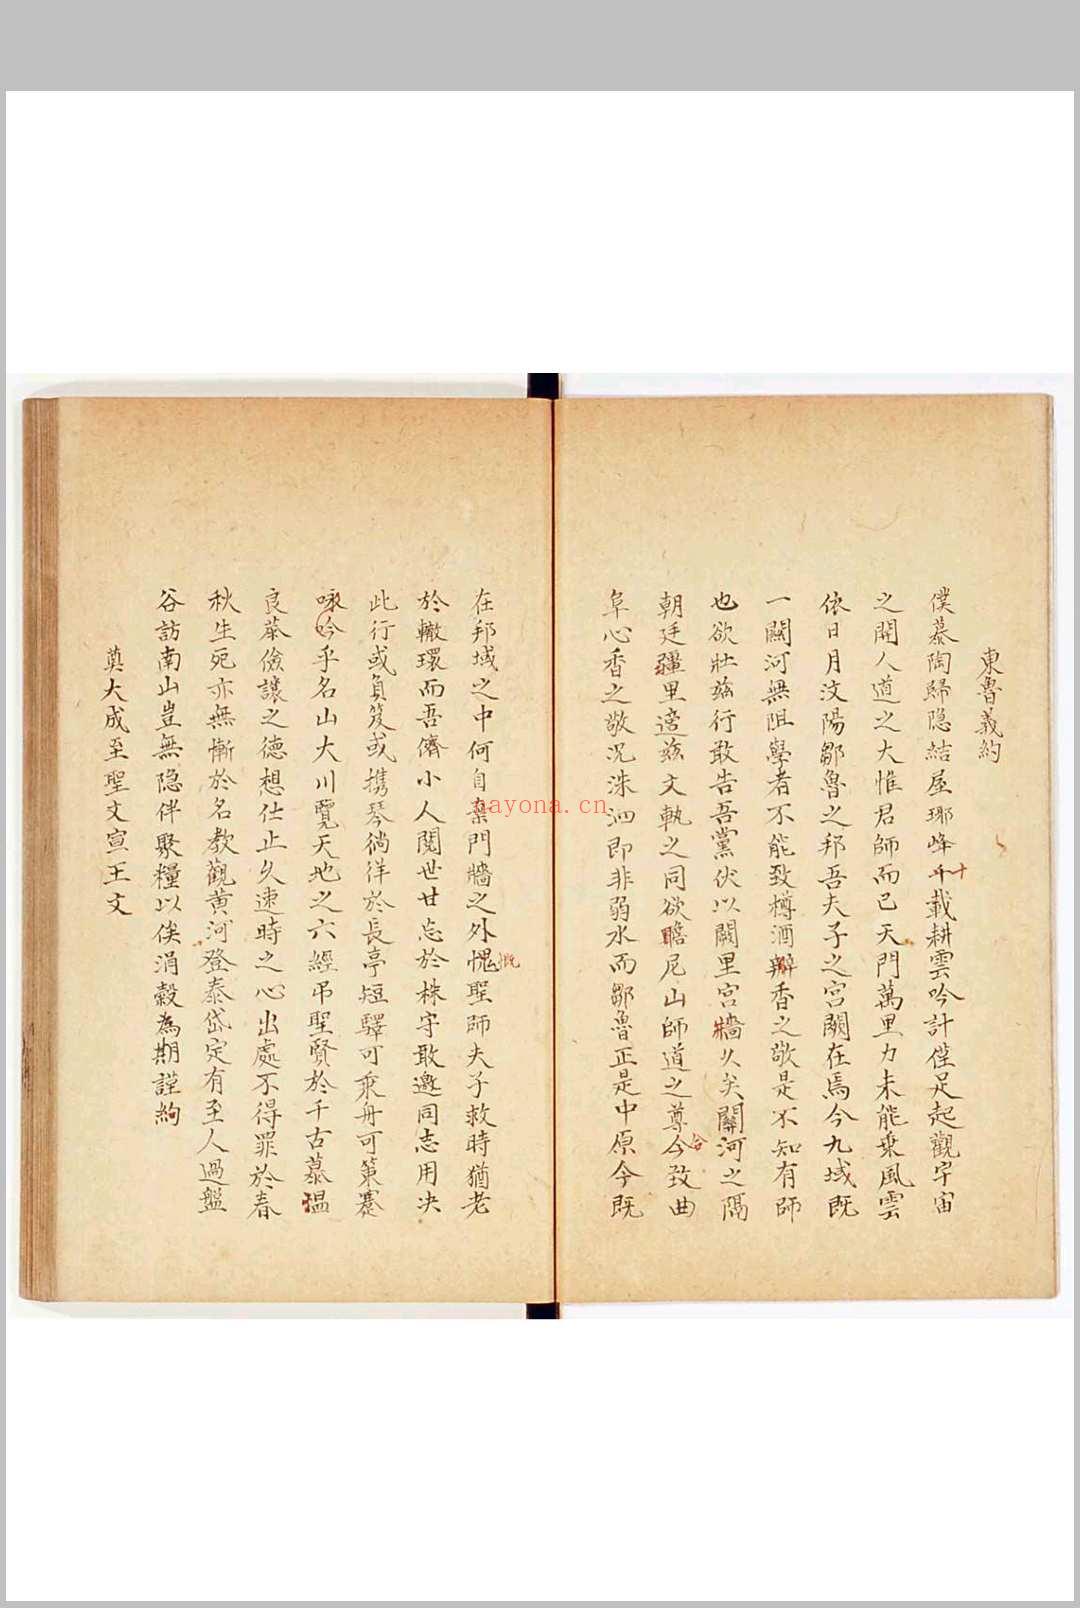 東魯義約
僕慕陶歸隐結屋琊峰千載耕雲吟計僅足起觀宇宙
十
之開人道之大惟君師而已天門萬里力未能乗風雲
依日月汶陽鄒魯之邦吾夫子之宫闕在焉今九域既
一關河無阻學者不能致樽酒辦香之敬是不知有師
也欲壯兹行敢告吾黨伏以闕里宫牆久矣關河之隔
朝廷疆里適兹文軌之同欲瞻尼山師道之尊今致曲
合
阜心香之敬况洙泗即非弱水而鄒魯正是中原今既
在邦域之中何自棄門牆之外愧聖師夫子救時猶老
慨
於轍環而吾儕小人閱世甘忘於株守敢邀同志用决
此行或負笈或携琴徜徉於長亭短驛可乗舟可策蹇
咏吟乎名山大川覽天地之六經吊聖賢於千古慕温
良恭儉讓之德想仕止久速時之心出處不得罪於春
秋生死亦無慚於名教觀黄河登泰岱定有至人過盤
谷訪南山豈無隐伴聚糧以俟涓榖為期謹約
奠大成至聖文宣王文
nayona.cn